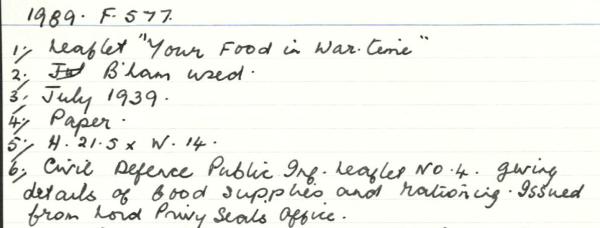 1989. F. 577.
1; Leaflet "Your Food in War-time"
2. B'ham used.
3; July 1939.
4; Paper.
5; H. 21.5 x W. 14.
6; Civil Defence Public Inf. Leaflet No. 4. giving
details of food supplies and rationing. Issued
from Lord Privy Seals Office.